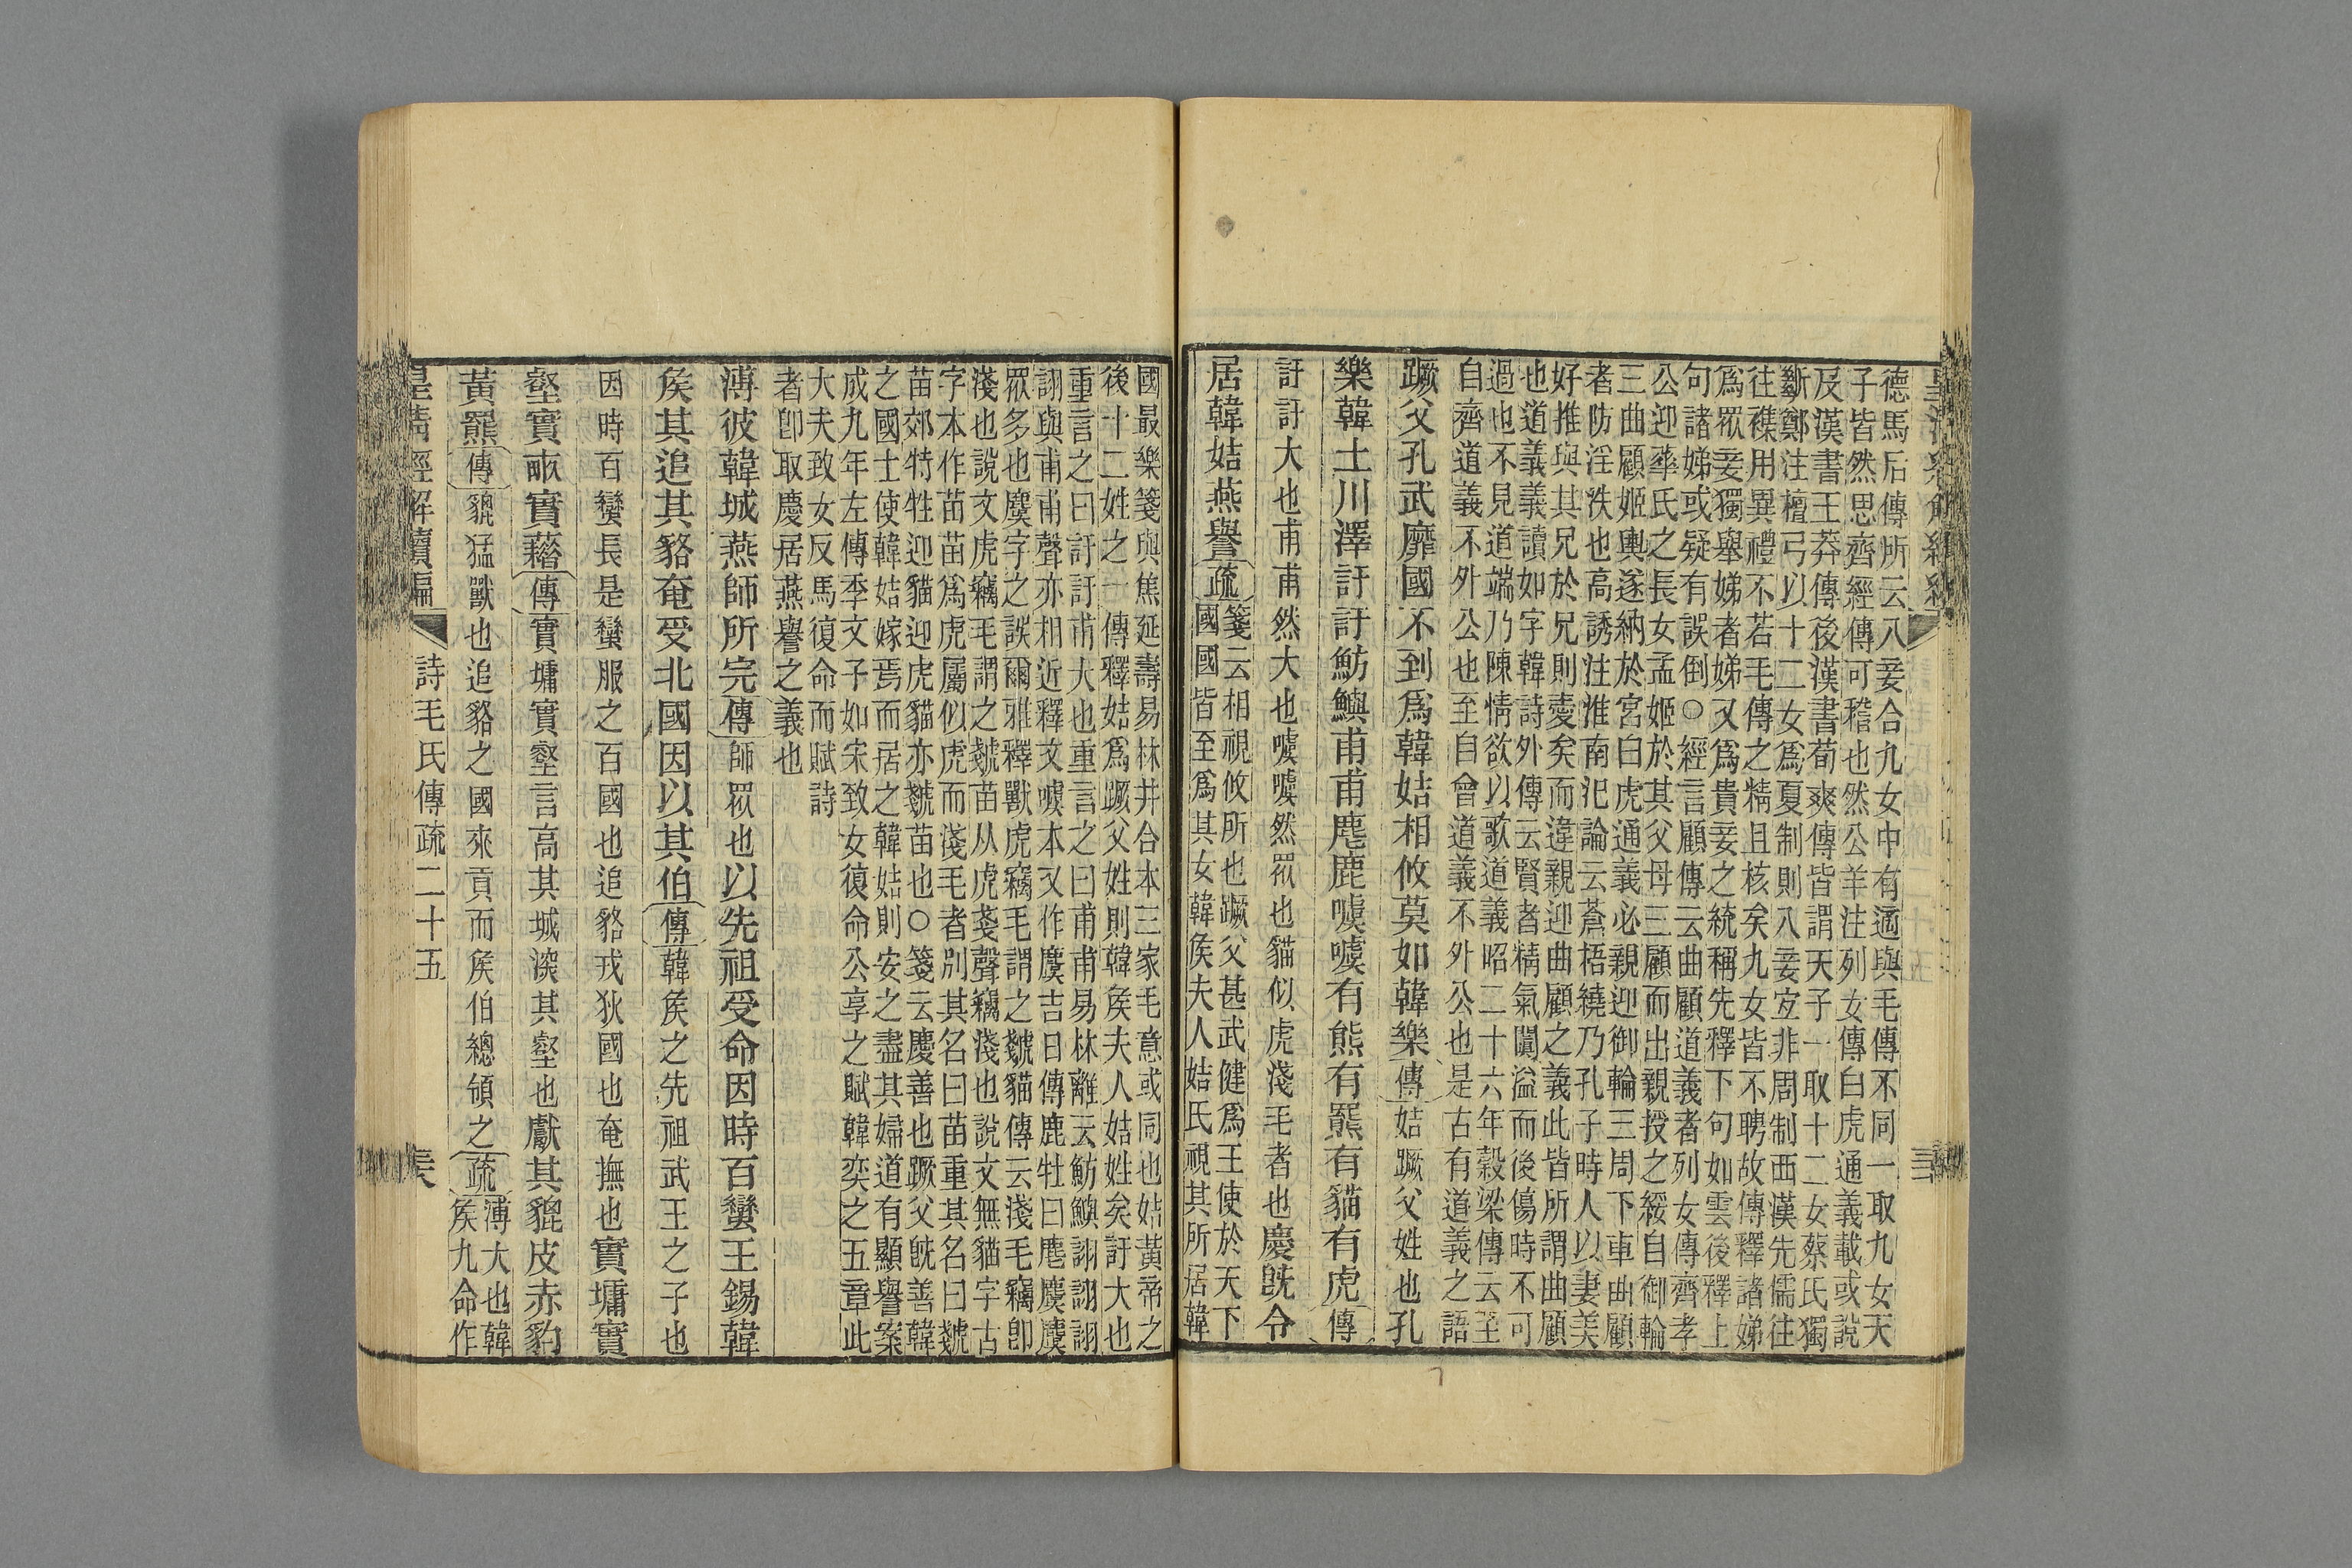 德馬后傳所云八妾合九女中有適與毛傳不同一取九女天
子皆然思齊經傳可稽也然公羊注列女傳白虎通義載或說
反漢書王莽傳後漢書荀爽傳皆謂天子一取十二女蔡氏獨
斷鄭注檀弓以十二女爲夏制則八妾宐非周制西漢先儒往
往襍用異禮不若毛傳之精且核矣九女皆不聘故傳釋諸娣
爲眾妾獨舉娣者娣又爲貴妾之統稱先釋下句如雲後釋上
句諸娣或疑有誤倒○經言顧傳云曲顧道義者列女傳齊孝
公迎華氏之長女孟姬於其父母三顧而出親授之綏自御輪
三曲顧姬輿遂納於宮白虎通義必親迎御輪三周下車曲顧
者防淫泆也高誘注淮南氾論云蒼梧繞乃孔子時人以妻美
好推與其兄於兄則愛矣而違親迎曲顧之義此皆所謂曲顧
也道義義讀如字韓詩外傳云賢者精氣闐溢而後傷時不可
過也不見道端乃陳情欲以歌道義昭二十六年穀梁傳云至
自齊道義不外公也至自會道義不外公也是古有道義之語
蹶父孔武靡國不到爲韓姞相攸莫如韓樂傳姞蹶父姓也孔
樂韓土川澤訏訏魴鱮甫甫麀鹿噳噳有熊有羆有貓有虎傳
訏訏大也甫甫然大也噳噳然眾也貓似虎淺毛者也慶旣令
居韓姞燕譽疏箋云相視攸所也蹶父甚武健爲王使於天下
國國皆至爲其女韓侯夫人姞氏視其所居韓
國最樂箋與焦延壽易林井合本三家毛意或同也姞黃帝之
後十二姓之一傳釋姞爲蹶父姓則韓侯夫人姞姓矣訏大也
重言之曰訏訏甫大也重言之曰甫甫易林離云魴鱮詡詡
詡與甫甫聲亦相近釋文噳本又作麌吉日傳鹿牡曰麀麌麌
眾多也麌字之誤爾雅釋獸虎竊毛謂之虦貓傳云淺毛竊卽
淺也說文虎竊毛謂之虦苗从虎戔聲竊淺也說文無貓字古
字本作苗苗爲虎屬似虎而淺毛者別其名曰苗重其名曰虦
苗郊特牲迎貓迎虎貓亦虦苗也○箋云慶善也蹶父旣善韓
之國士使韓姞嫁焉而居之韓姞則安之盡其婦道有顯譽案
成九年左傳季文子如宋致女復命公享之賦韓奕之五章此
大夫致女反馬復命而賦詩
者卽取慶居燕譽之義也
溥彼韓城燕師所完傳師眾也以先祖受命因時百蠻王錫韓
侯其追其貉奄受北國因以其伯傳韓侯之先祖武王之子也
因時百蠻長是蠻服之百國也追貉戎狄國也奄撫也實墉實
壑實畝實藉傳實墉實壑言高其城深其壑也獻其貔皮赤豹
黃羆傳貔猛獸也追貉之國來貢而侯伯總領之疏溥大也韓
侯九命作
皇清經解續編 詩毛氏傳疏二十五